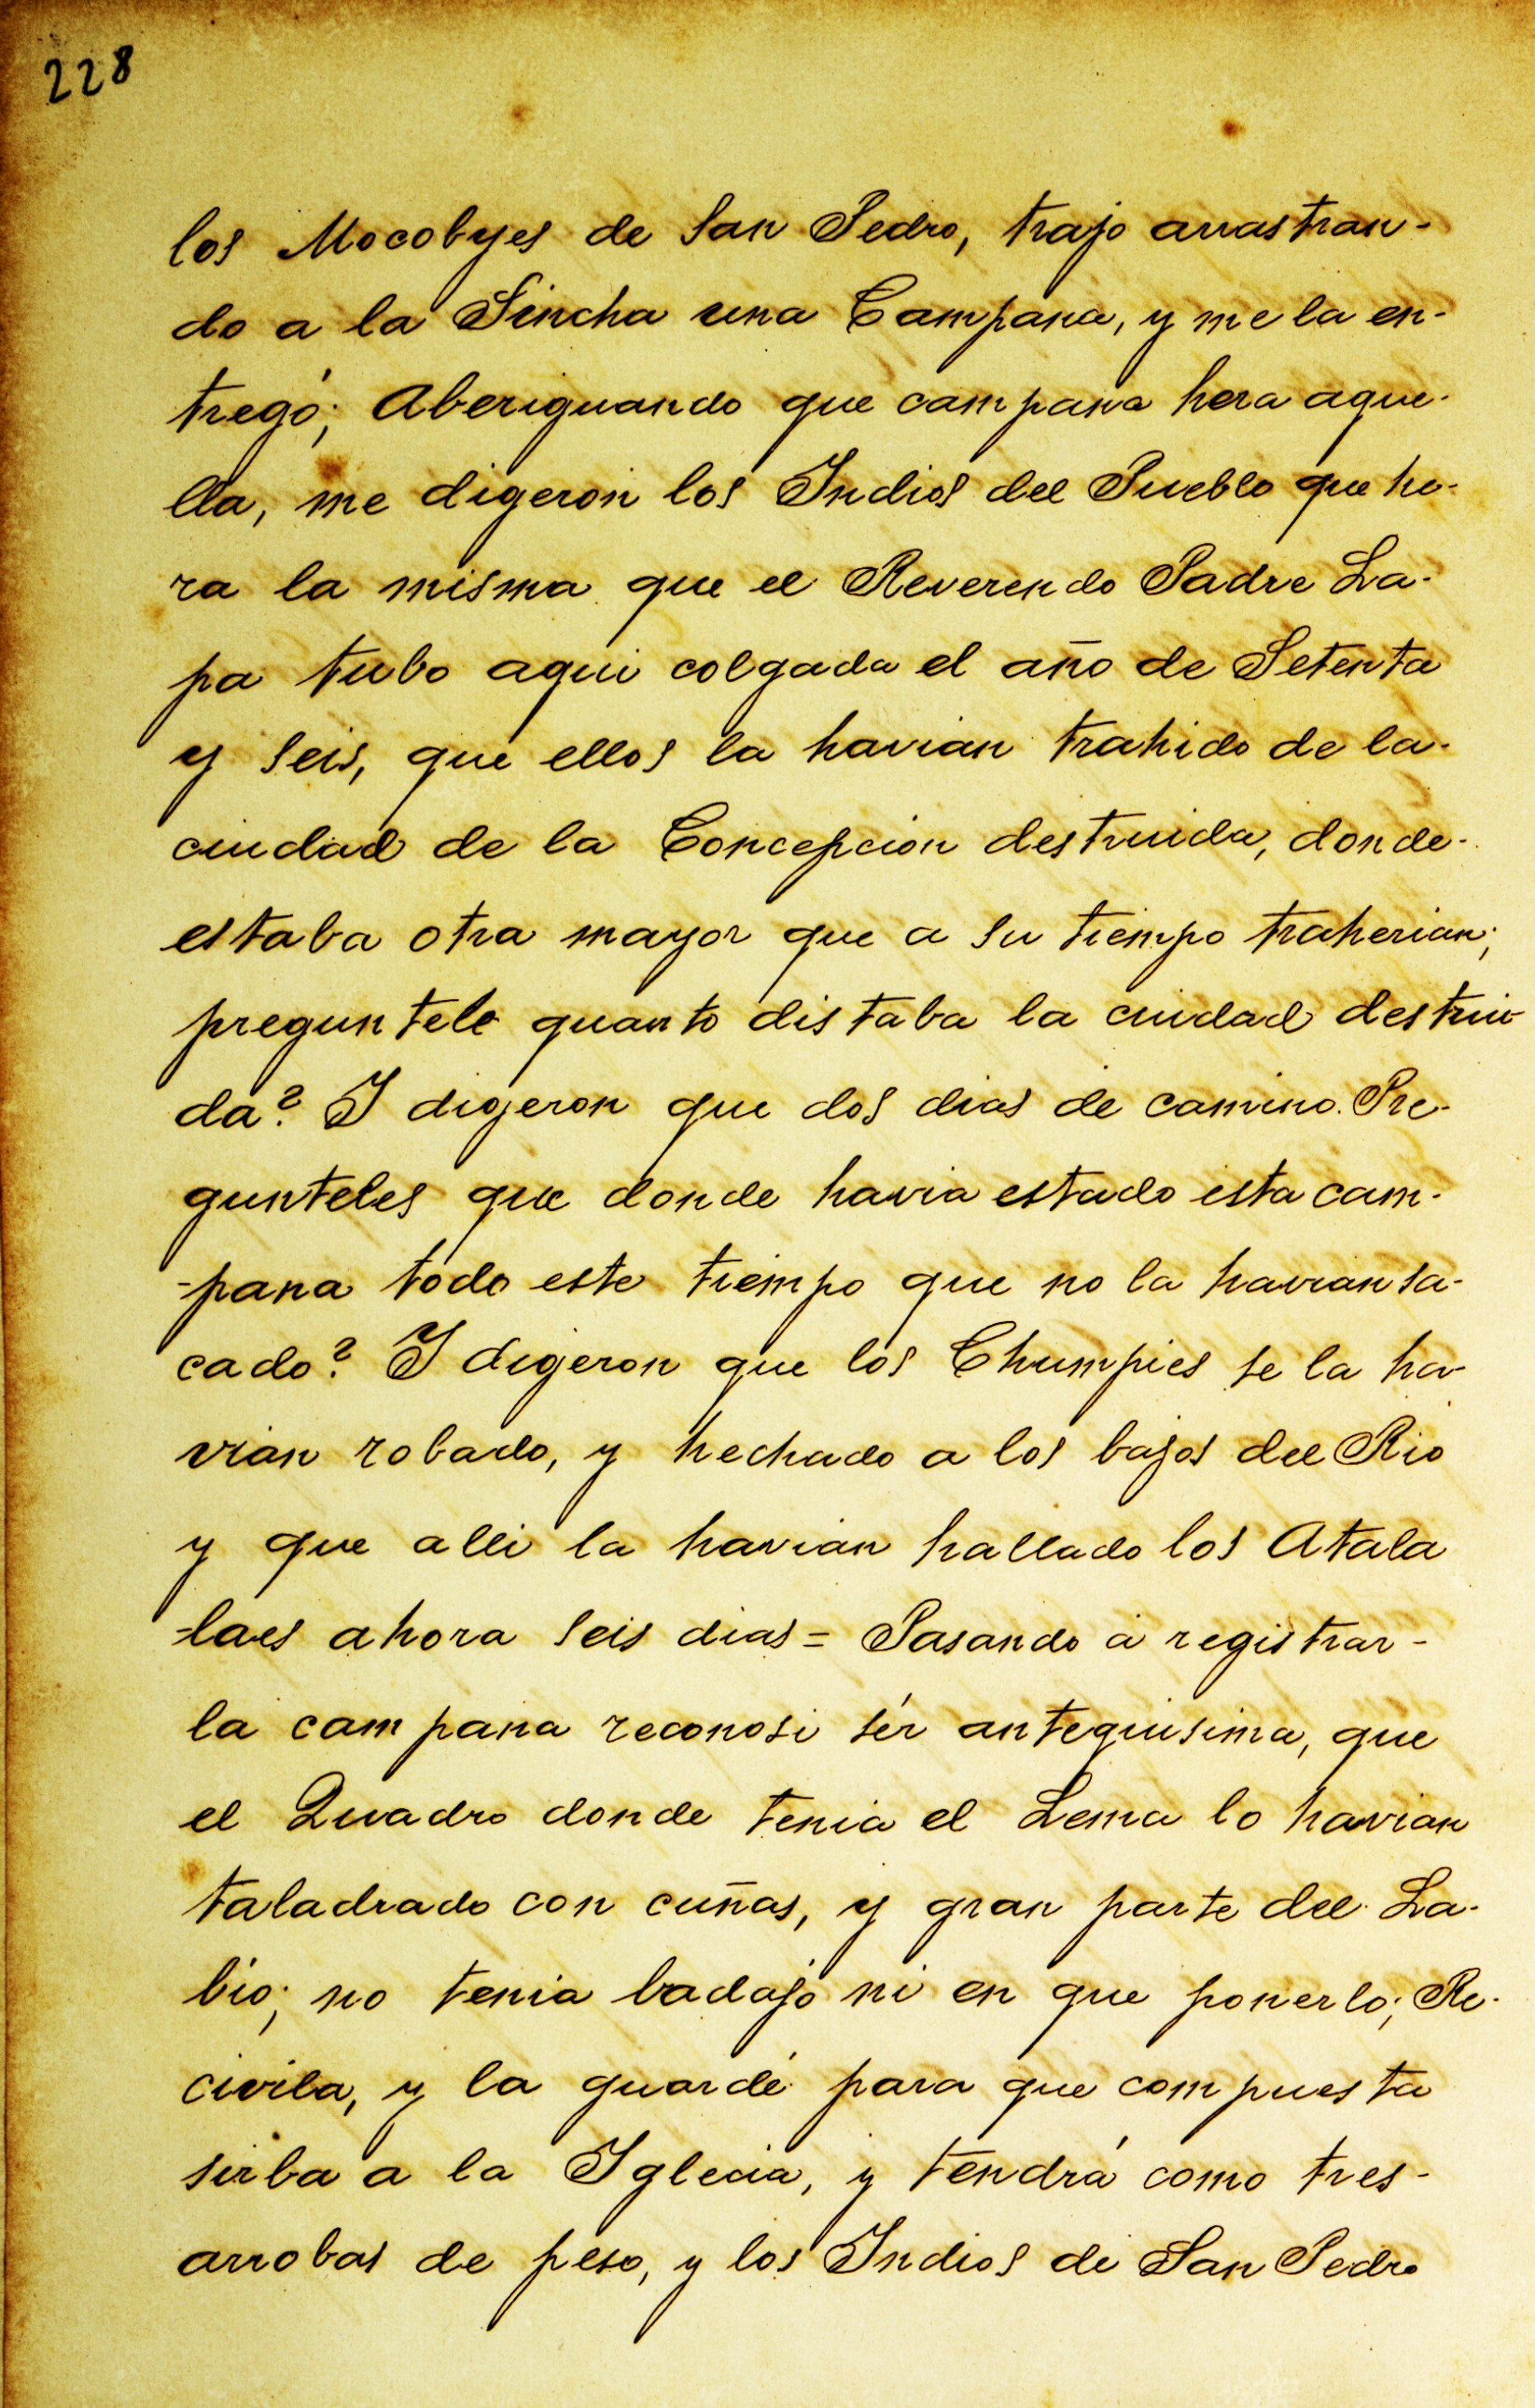 228
los Mocobyes de San Pedro, trajo arrastran-
do a la Sincha una Campana, y me la en-
tregó; Aberiguando que campana hera aque-
lla, me digeron los Indios del Pueblo que he-
ra la misma que el Reverendo Padre La-
pa tubo aqui colgada el año de Setenta
y seis, que ellos la havian trahido de la-
ciudad de la Concepcion destruida, donde-
estaba otra mayor que a su tiempo traherian;
preguntele quanto distaba la ciudad destrui-
da? I digeron que dos dias de camino. Pre-
gunteles que donde havia estado esta cam-
-pana todo este tiempo que no la havian sa-
cado? I digeron que los Chumpies se la ha-
vian robado, y hechado a los bajos del Rio
y que alli la havian hallado los Atala
-laes ahora seis dias = Pasando á registrar-
la campana reconosi sér antequisima, que
el Quadro donde tenia el Lema lo havian
taladrado con cuñas, y gran parte del La-
bio; no tenia badajo ni en que ponerlo; Re-
civila, y la guardé para que compuesta
sirba a la Iglecia, y tendrá como tres-
arrobas de peso, y los Indios de San Pedro